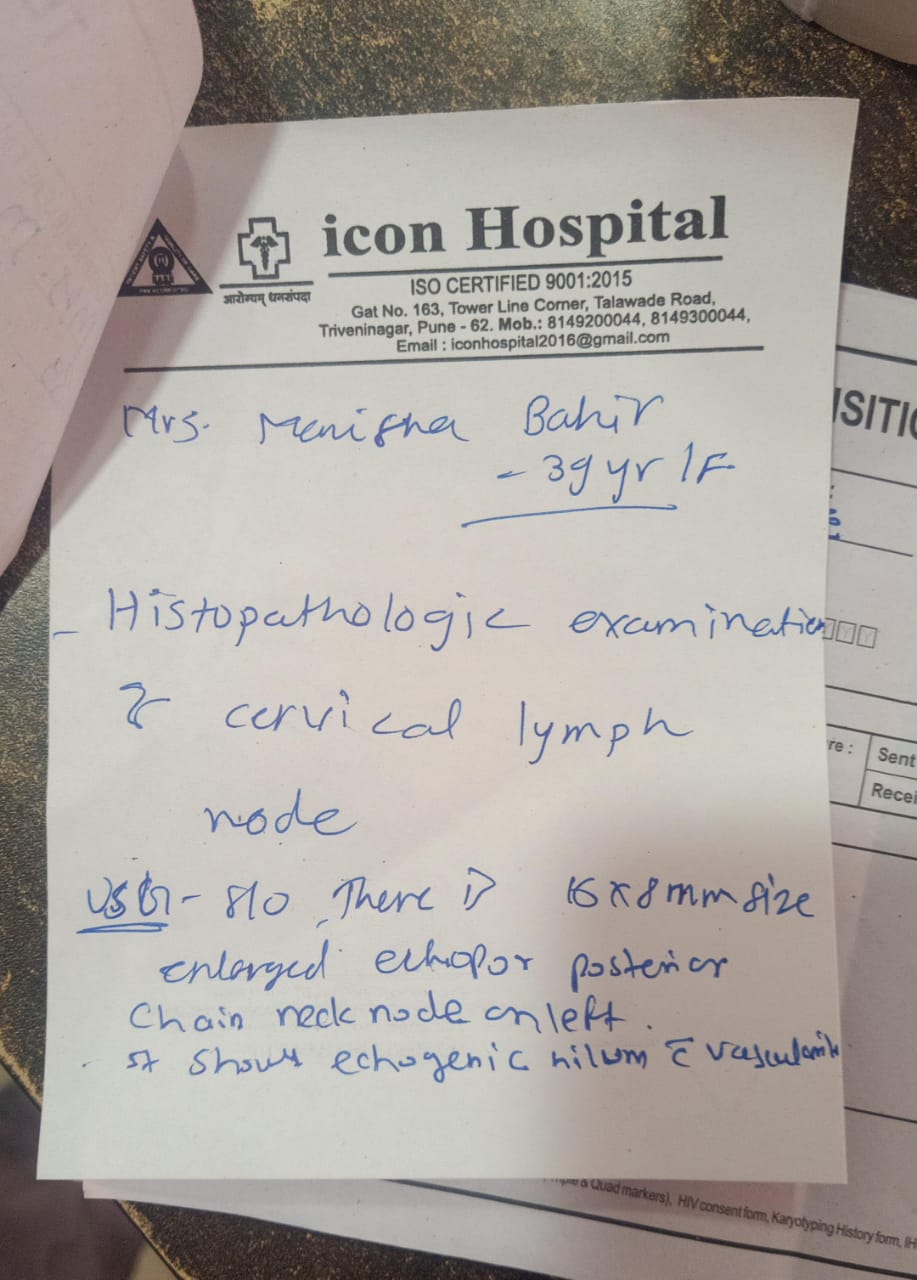 icon Hospital
आरोग्यम् धनसंपदा
ISO CERTIFIED 9001:2015
Gat No. 163, Tower Line Corner, Talawade Road,
Triveninagar, Pune - 62. Mob.: 8149200044, 8149300044,
Email : iconhospital2016@gmail.com
Mrs. Manisha Bahir
- 39 yr / F
- Histopathologic examination
cervical lymph
node
USG - S/O There is 16 x 8 mm size
enlarged echopor posterior
chain neck node on left.
It shows echogenic hilum c̄ vascularity
ISITIO
re :
Sent
Recei
& Quad markers), HIV consent form, Karyotyping History form, IH